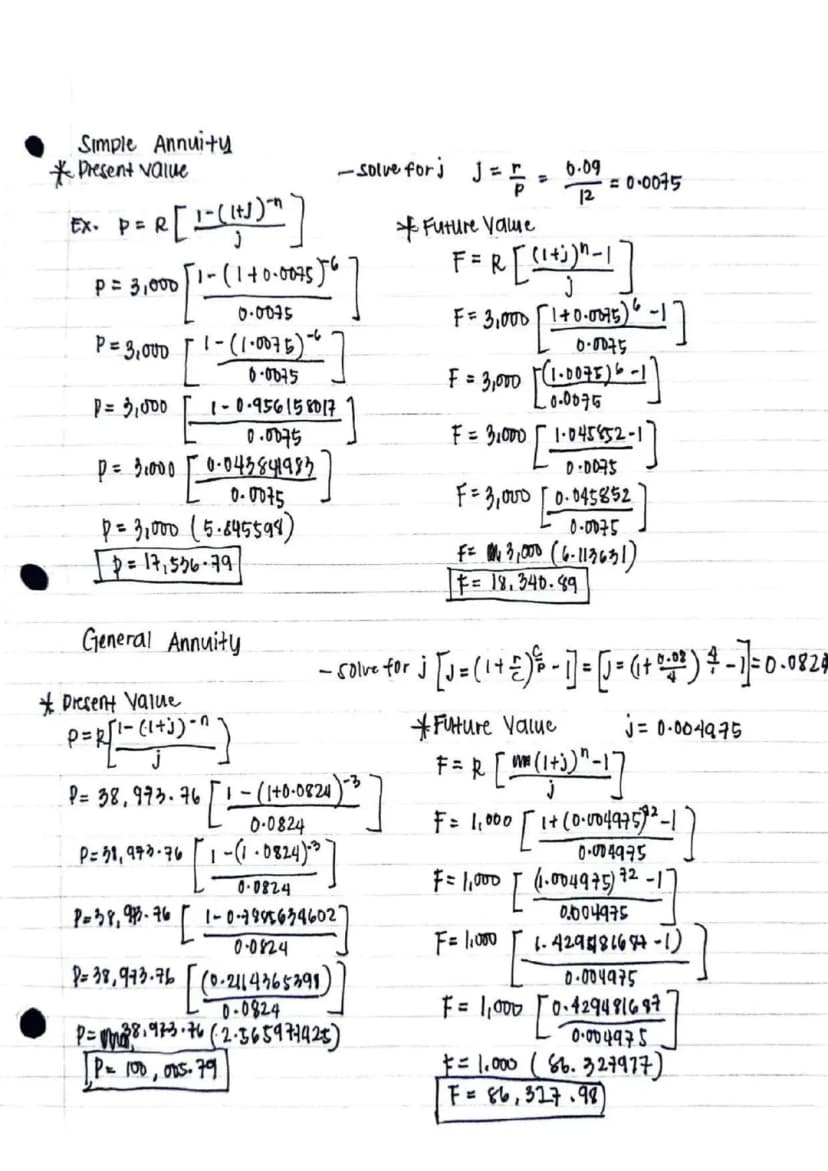 Simple Annuity
* Present Value
- solve for j j = r/p = 0.09/12 = 0.0075
Ex. P = R [ 1-(1+j)^-n / j ]
P = 3,000 [ 1-(1+0.0075)^-6 / 0.0075 ]
P = 3,000 [ 1-(1.0075)^-6 / 0.0075 ]
P = 3,000 [ 1-0.956158017 / 0.0075 ]
P = 3,000 [ 0.043841983 / 0.0075 ]
P = 3,000 (5.845598)
P = 17,536.79
* Future Value
F = R [ (1+j)^n -1 / j ]
F = 3,000 [ 1+0.0075)^6 -1 / 0.0075 ]
F = 3,000 [ (1.0075)^6 -1 / 0.0075 ]
F = 3,000 [ 1.045852-1 / 0.0075 ]
F = 3,000 [ 0.045852 / 0.0075 ]
F = 3,000 (6.113631)
F = 18,340.89
General Annuity
- solve for j [ J = (1+ r/c)^c/p - 1 ] = [ J = (1+ 0.08/4) 4/1 - 1 ] = 0.0824
* Present Value
P = R [ 1-(1+j)^-n / j )
P = 38,973.76 [ 1-(1+0.0824)^-3 / 0.0824 ]
P = 38,973.76 [ 1-(1.0824)^-3 / 0.0824 ]
P = 38,973.76 [ 1-0.7885634602 / 0.0824 ]
P = 38,973.76 [ (0.2114365398) / 0.0824 ]
P = 38,973.76 (2.565977425)
P = 100,005.79
* Future Value j = 0.004975
F = R [ (1+j)^n -1 / j ]
F = 1,000 [ 1+(0.004975)^72 -1 / 0.004975 ]
F = 1,000 [ (1.004975)^72 -1 / 0.004975 ]
F = 1,000 [ -1) / 0.004975 ]
F = 1,000 [ 0.429481687 / 0.004975 ]
F = 1,000 ( 86.327977)
F = 86,327.98